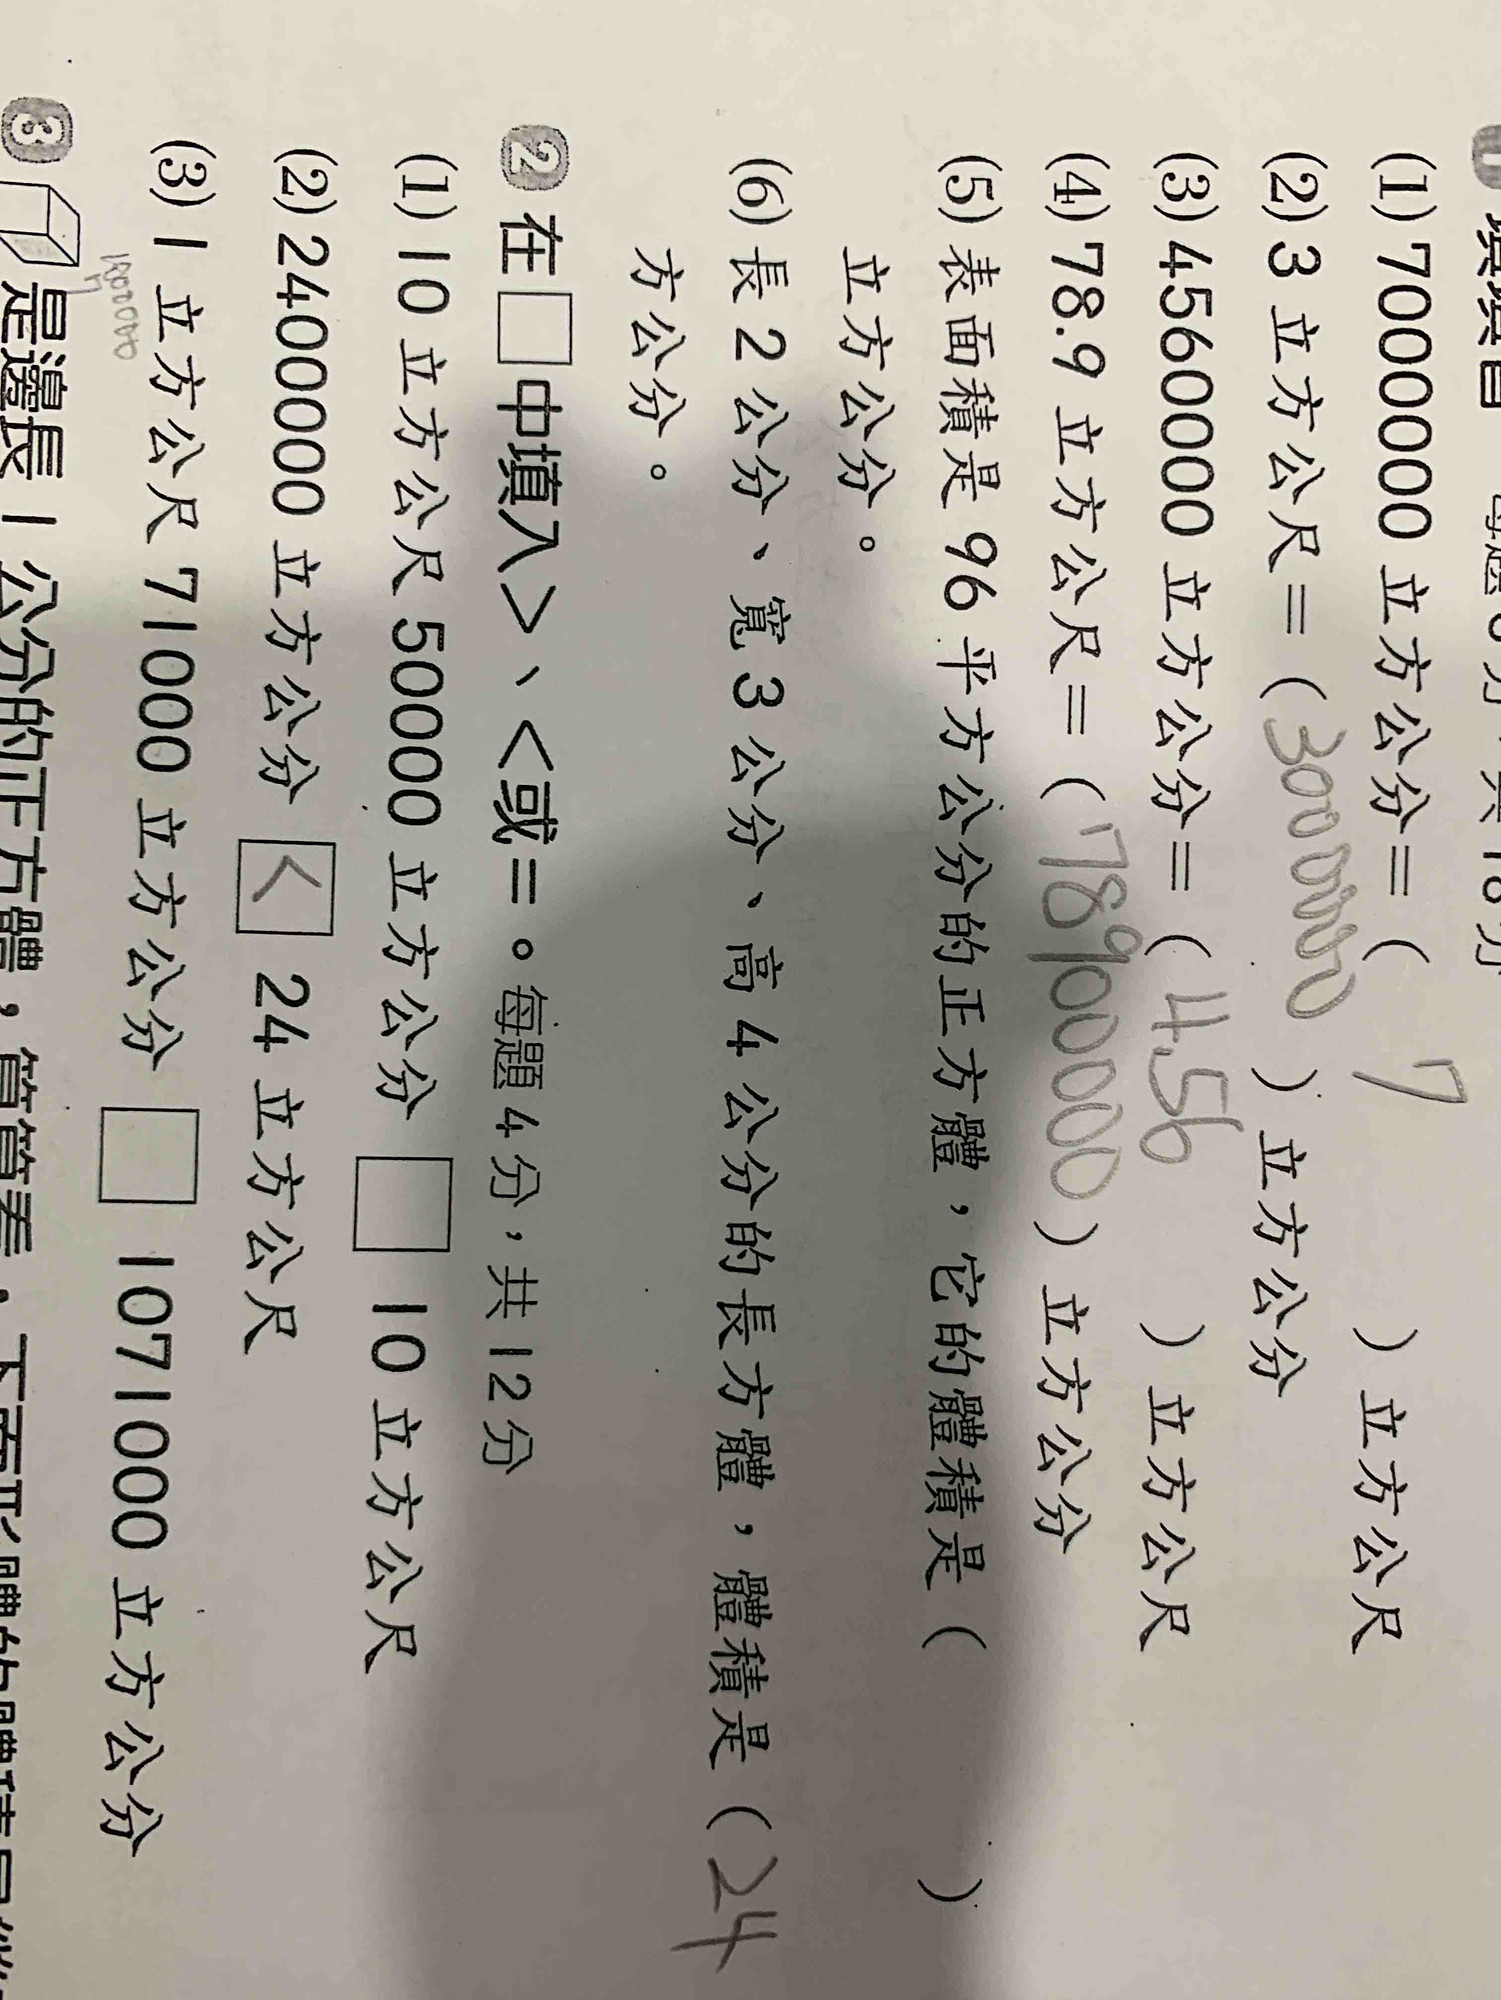 1 填填看 每題3分,共18分
(1) 7000000 立方公分=( 7 )立方公尺
(2) 3 立方公尺=( 3000000 )立方公分
(3) 4560000 立方公分=( 4.56 )立方公尺
(4) 78.9 立方公尺=( 78900000 )立方公分
(5) 表面積是 96 平方公分的正方體,它的體積是( )
立方公分。
(6) 長 2 公分、寬 3 公分、高 4 公分的長方體,體積是( 24
方公分。
2 在□中填入>、<或=。每題4分,共12分
(1) 10 立方公尺 50000 立方公分 □ 10 立方公尺
(2) 2400000 立方公分 < 24 立方公尺
(3) 1 立方公尺 71000 立方公分 □ 1071000 立方公分
1000000
3 是邊長 1 公分的正方體,